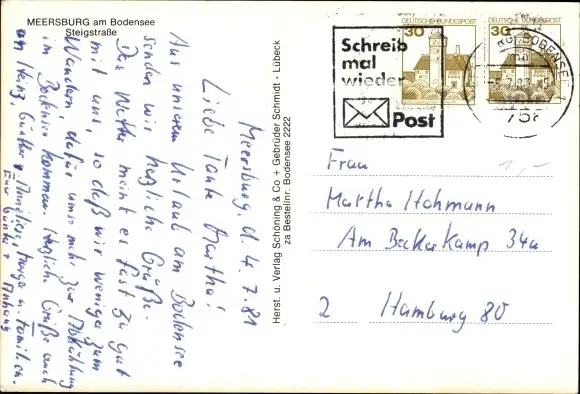 MEERSBURG am Bodensee
Steigstraße
Meersburg, d. 4.7.81
Liebe Tante Martha!
Aus unserem Urlaub am Bodensee
senden wir herzliche Grüße.
Das Wetter meint es fast zu gut
mit uns, so daß wir weniger zum
Wandern, dafür umso mehr zur Abkühlung
im Bodensee kommen. Herzliche Grüße auch
an Heinz, Günther u. Familien.
Eure Günter +
Anhang
Herst. u. Verlag Schöning & Co + Gebrüder Schmidt - Lübeck
za Bestellnr. Bodensee 2222
Schreib
mal
wieder
Post
DEUTSCHE BUNDESPOST
30
DEUTSCHE BUNDESPOST
30
BODENSEE
758
1,-
Frau
Martha Hohmann
Am Beckerkamp 34a
2 Hamburg 80